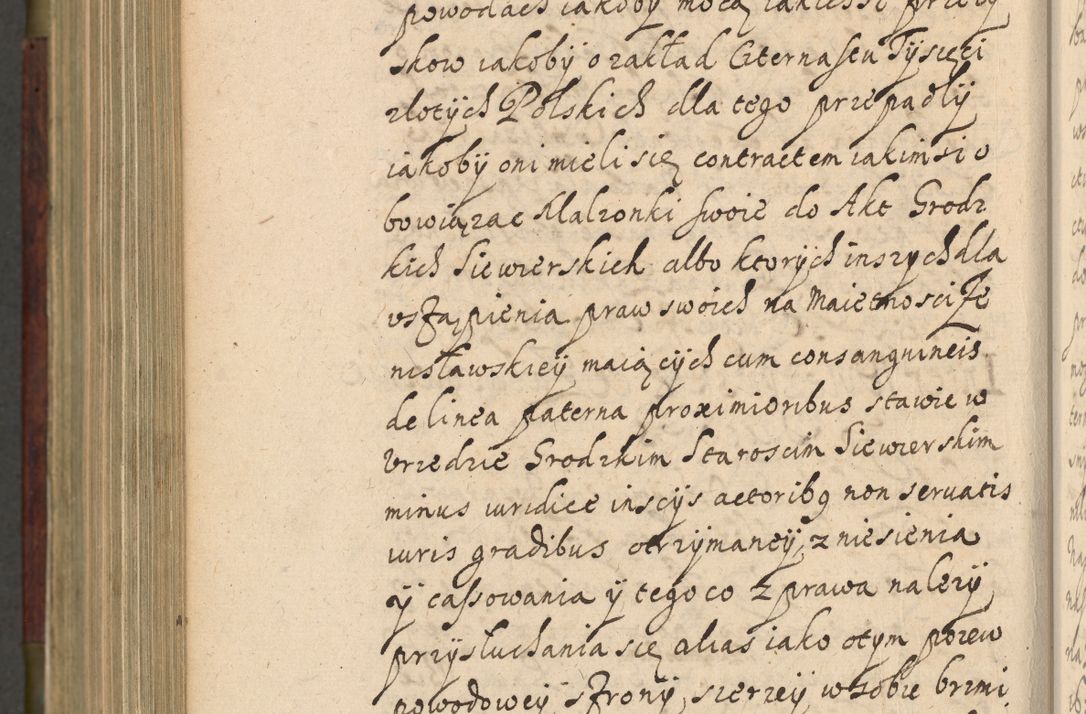 powodach iakoby mocą iakiesi przezy
skow iakobÿ o zakład Czternastu Tÿsięci
złotÿch Polskich dla tego przepadlÿ
iakobÿ oni mieli się contractem iakimsi o
bowiązac Małzonki swoie do Akt Grodz
kich Siewierskich albo ktorÿch inszych dla
vstąpienia praw swoich na Maiętnosci Ze
nisławskieÿ maiącÿch cum consanguineis
de linea paterna proximioribus stawie w
Vrzedzie Grodzkim Staroscim Siewierskim
minus iuridice insciÿs actoribq non seruatis
iuris gradibus otrzÿmaneÿ, zniesienia
ÿ cassowania ÿ tego co z prawa nalezÿ
przÿsluchania się alias iako otym pozew
powodoweÿ stronÿ, szerzeÿ w sobie brzmi